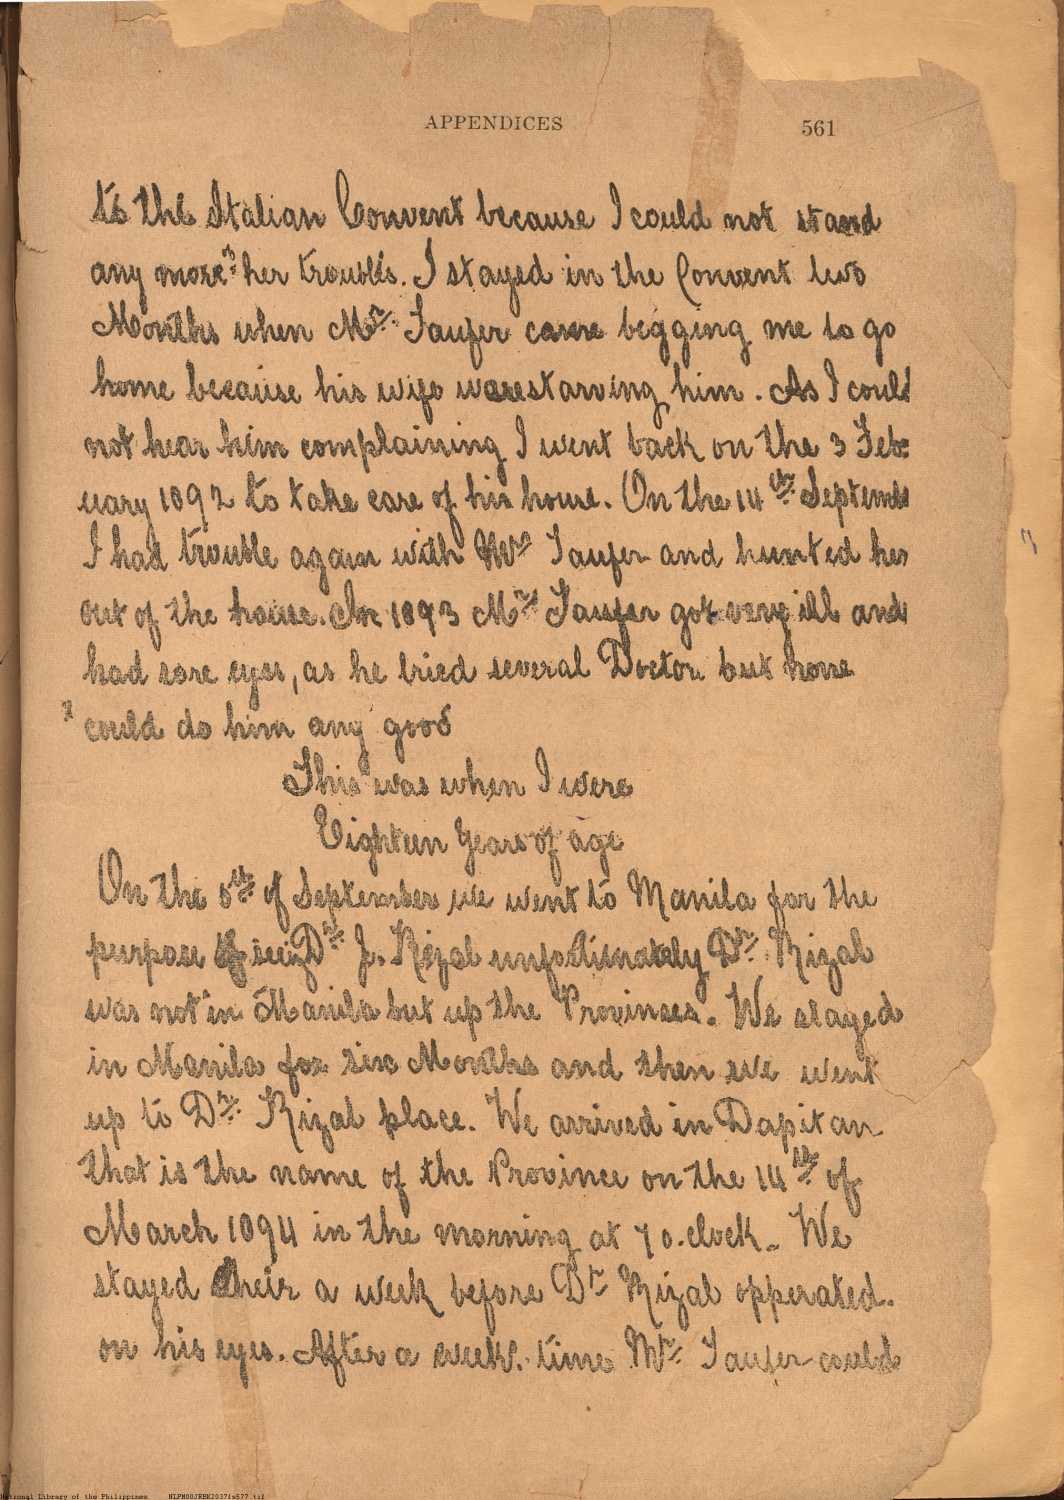 APPENDICES 561
to the Italian Convent because I could not stand
any more her troubles. I stayed in the Convent two
Months when Mr. Taufer came begging me to go
home because his wife were starving him. As I could
not hear him complaining I went back on the 3 Feb-
uary 1892 to take care of his house. On the 14th Septembe
I had trouble again with Mrs Taufer and hunted her
out of the house. In 1893 Mr Taufer got very ill and
had sore eyes, as he tried several Doctor but none
could do him any good
This was when I were
Eighteen Years of age
On the 5th of September we went to Manila for the
purpose of Dr. J. Rizal unfortunately Dr. Rizal
was not in Manila but up the Provinses. We stayed
in Manila for six Months and then we went
up to Dr. Rizal place. We arrived in Dapitan
that is the name of the Province on the 14th of
March 1894 in the morning at 7 o.clock. We
stayed their a week before Dr Rizal opperated.
on his eyes. After a week. time Mr. Taufer could
National Library of the Philippines